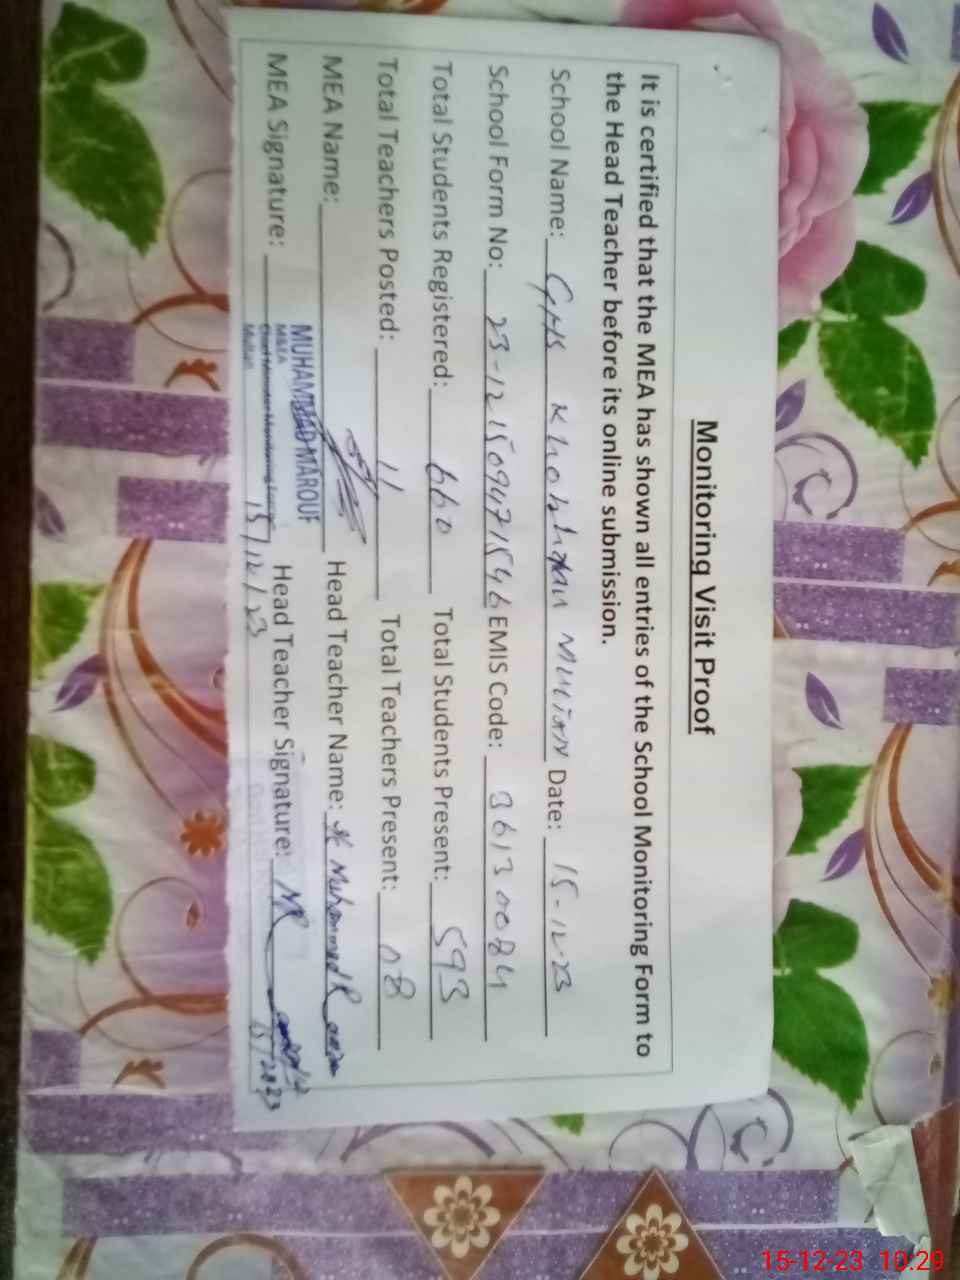 Monitoring Visit Proof
It is certified that the MEA has shown all entries of the School Monitoring Form to
the Head Teacher before its online submission.
School Name: GHS Multan Date: 15-12-23
School Form No: 23-121509471546 EMIS Code: 36130084
Total Students Registered: 660 Total Students Present: 593
Total Teachers Posted: 11 Total Teachers Present: 08
MEA Name: Head Teacher Name: Muhammad
MUHAMMAD MAROUF
M&EA
Multan
MEA Signature: 15/12/23 Head Teacher Signature: MR
15-12-23 10:29